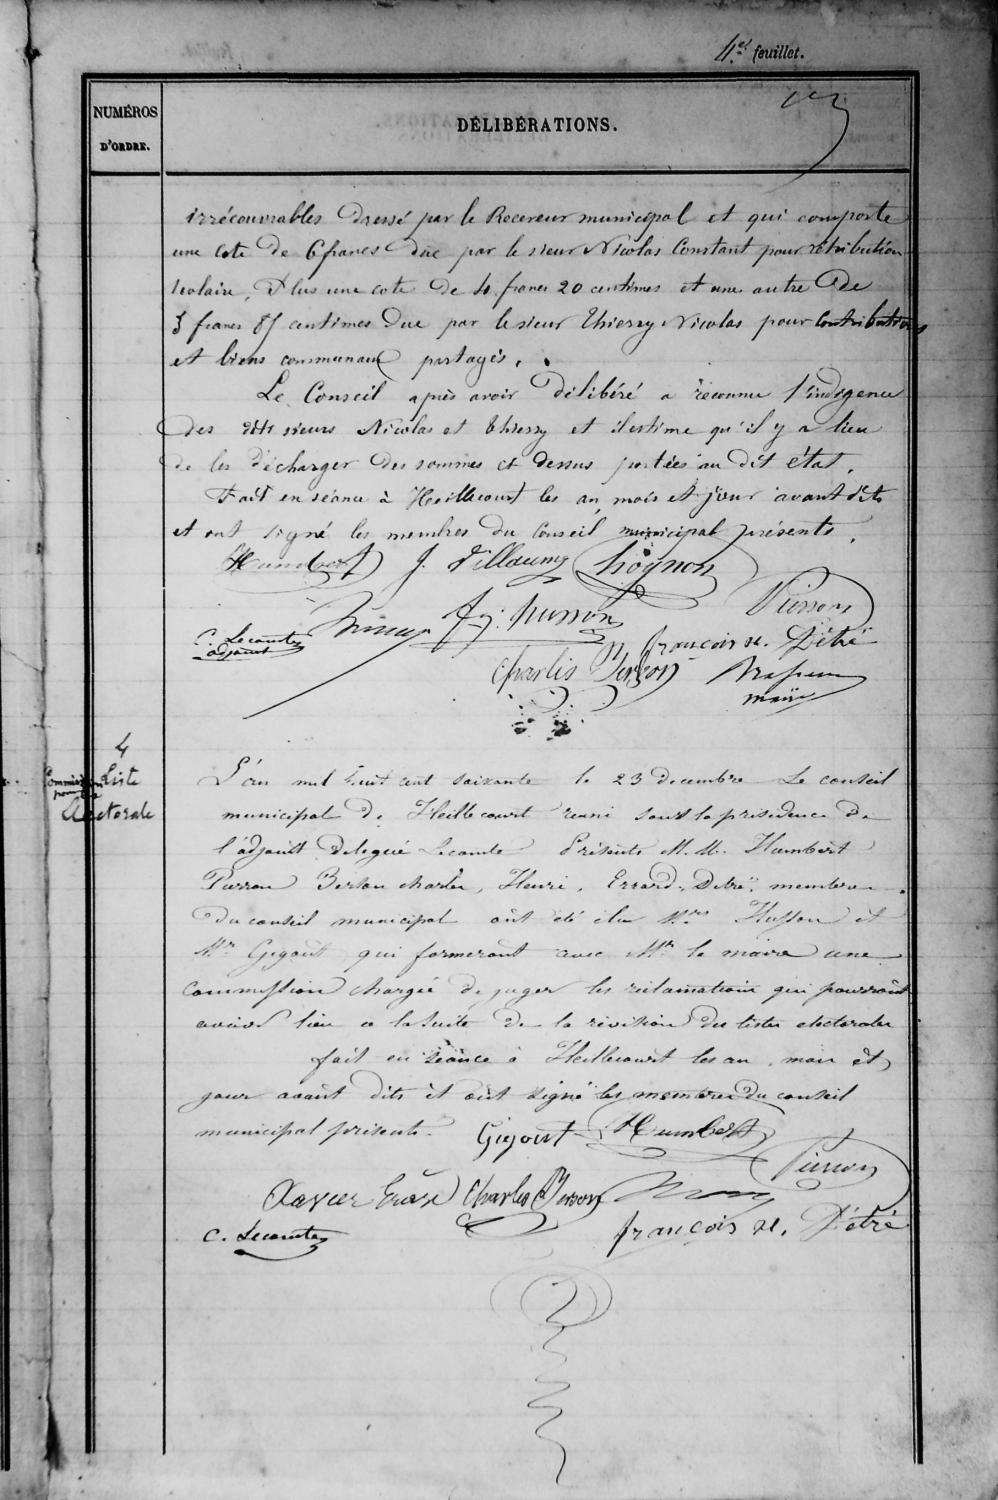 4.e feuillet.
NUMÉROS
D'ORDRE.
DÉLIBÉRATIONS.
irrécouvrables dressé par le Receveur municipal et qui comporte
une cote de 6 francs due par le sieur Nicolas Constant pour rétribution
scolaire, Plus une cote de 4 francs 20 centimes et une autre de
5 francs 85 centimes due par le sieur Thierry Nicolas pour Contributions
et biens communaux partagés.
Le Conseil après avoir délibéré a reconnu l'indigence
des dits sieurs Nicolas et Thierry et il estime qu'il y a lieu
de les décharger des sommes ci dessus portées au dit état.
Fait en séance à Heillecourt les an, mois et jour avant dits
et ont signé les membres du Conseil municipal présents.
Humbert J. Villaume Chognon
Pierson
husson
C. Lecomte
adjoint
françois H. Détré
Charles Berson
maire
4
Commission
pour la
Liste
électorale
L'an mil huit cent soixante le 23 decembre Le conseil
municipal de Heillecourt reuni sous la presidence de
l'adjoint delegué Lecomte Présents M.M. Humbert
Pierson Berson charles, Henri, Errard, Detré, membres
du conseil municipal ont été élu Mrs Husson et
Mr Gigout qui formeront avec Mr le maire une
Commission chargée de juger les reclamations qui pourront
avoir lieu a la suite de la révision des listes electorales
fait en séance à Heillecourt les an, mois et
jour avant dits et ont signé les membres du conseil
municipal présents.
Gigout Humbert
Pierson
Xavier Erard Charles Berson
C. Lecomte
françois H. Détré